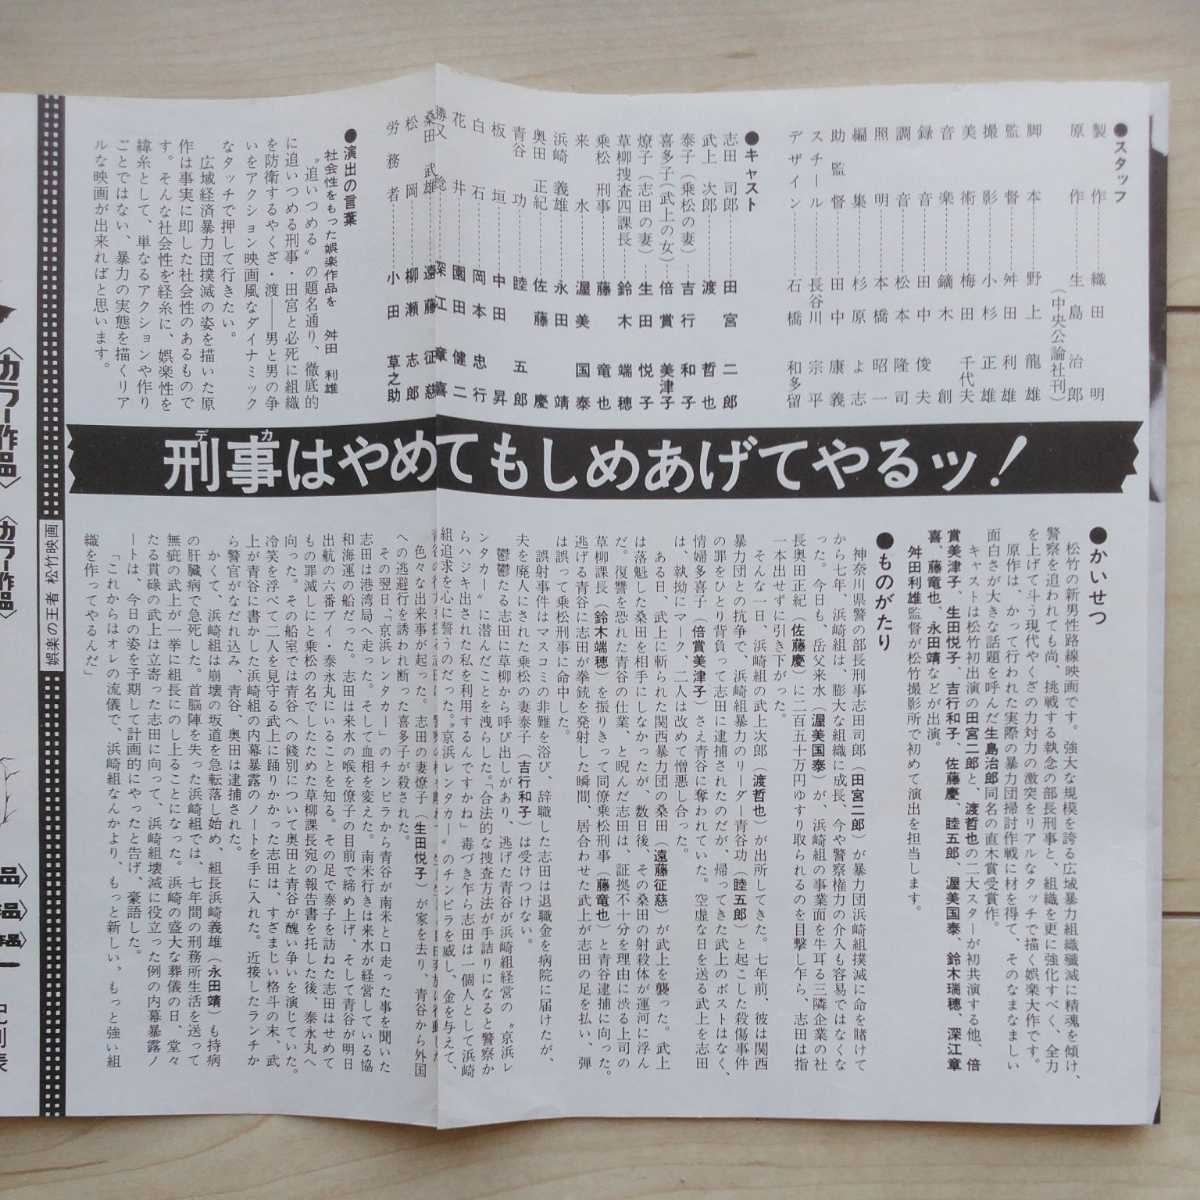 ●スタッフ
製作……織田 明
原作……生島 治郎
(中央公論社刊)
脚本……野上 龍雄
監督……舛田 利雄
撮影……小杉 正雄
美術……梅田 千代夫
音楽……鏑木 創
録音……田中 俊夫
調音……松本 隆司
照明……本橋 昭一
編集……杉原 よ志
助監督……田中 康義
スチール……長谷川 宗平
デザイン……石橋 和多留
●キャスト
志田 司郎……田宮 二郎
武上 次郎……渡 哲也
泰子(乗松の妻)……吉行 和子
喜多子(武上の女)……倍賞 美津子
燎子(志田の妻)……生田 悦子
草柳捜査四課長……鈴木 瑞穂
乗松 刑事……藤 竜也
来水……渥美 国泰
浜崎 義雄……永田 靖
奥田 正紀……佐藤 慶
青谷 功……睦 五郎
板垣……中田 昇
白石……岡本 忠行
花井……園田 健二
勝又 ……深江 章喜
桑田 武雄……遠藤 征慈
松岡……柳瀬 志郎
労務者……小田 草之助
●演出の言葉
社会性をもった娯楽作品を 舛田 利雄
〝追いつめる〟の題名通り、徹底的
に追いつめる刑事・田宮と必死に組織
を防衛するやくざ・渡――男と男の争
いをアクション映画風なダイナミック
なタッチで押して行きたい。
広域経済暴力団撲滅の姿を描いた原
作は事実に即した社会性のあるもので
す。そんな社会性を経糸に、娯楽性を
緯糸として、単なるアクションや作り
ごとではない、暴力の実態を描くリア
ルな映画が出来ればと思います。
刑事はやめてもしめあげてやるッ!
デカ
●かいせつ
松竹の新男性路線映画です。強大な規模を誇る広域暴力組織殲滅に精魂を傾け、
警察を追われても尚、挑戦する執念の部長刑事と、組織を更に強化すべく、全力
を上げて斗う現代やくざの力対力の激突をリアルなタッチで描く娯楽大作です。
原作は、かって行われた実際の暴力団掃討作戦に材を得て、そのなまなましい
面白さが大きな話題を呼んだ生島治郎同名の直木賞受賞作。
キャストは松竹初出演の田宮二郎と、渡哲也の二大スターが初共演する他、倍
賞美津子、生田悦子、吉行和子、佐藤慶、睦五郎、渥美国泰、鈴木瑞穂、深江章
喜、藤竜也、永田靖などが出演。
舛田利雄監督が松竹撮影所で初めて演出を担当します。
●ものがたり
神奈川県警の部長刑事志田司郎(田宮二郎)が暴力団浜崎組撲滅に命を賭けて
から七年、浜崎組は、膨大な組織に成長、今や警察権力の介入も容易ではなくな
った。今日も、岳父来水(渥美国泰)が、浜崎組の事業面を牛耳る三隣企業の社
長奥田正紀(佐藤慶)に二百五十万円ゆすり取られるのを目撃し乍ら、志田は指
一本出せずに引き下がった。
そんな一日、浜崎組の武上次郎(渡哲也)が出所してきた。七年前、彼は関西
暴力団との抗争で、浜崎組暴力のリーダー青谷功(睦五郎)と起こした殺傷事件
の罪をひとり背負って志田に逮捕されたのだが、帰ってきた武上のポストはなく、
情婦多喜子(倍賞美津子)さえ青谷に奪われていた。空虚な日を送る武上を志田
は、執拗にマーク、二人は改めて憎悪し合った。
ある日、武上に斬られた関西暴力団の桑田(遠藤征慈)が武上を襲った。武上
は落魄した桑田を相手にしなかったが、数日後、その桑田の射殺体が運河に浮ん
だ。復讐を恐れた青谷の仕業、と睨んだ志田は、証拠不十分を理由に渋る上司の
草柳課長(鈴木瑞穂)を振りきって同僚乗松刑事(藤竜也)と青谷逮捕に向った。
逃げる青谷に志田が拳銃を発射した瞬間、居合わせた武上が志田の足を払い、弾
は誤って乗松刑事に命中した。
誤射事件はマスコミの非難を浴び、辞職した志田は退職金を病院に届けたが、
夫を廃人にされた乗松の妻泰子(吉行和子)は受けつけない。
鬱々たる志田に草柳から呼び出しがあり、逃げた青谷が浜崎組経営の〝京浜レ
ンタカー〟に潜んだことを洩らした。「合法的な捜査方法が手詰りになると警察か
らハジキ出された私を利用するんですかね」毒づき乍ら志田は一個人として浜崎
組追求を心に誓うのだった。〝京浜レンタカー〟のチンピラを威し、金を与えて、
色々な出来事が起った。志田の妻燎子(生田悦子)が家を去り、青谷から外国
への逃避行を誘われ断った喜多子が殺された。
その翌日、「京浜レンタカー」のチンピラから青谷が南米と口走った事を聞いた
志田は港湾局へ走った。そして血相を変えた。南米行きは来水が経営している協
和海運の船だった。志田は来水の喉を燎子の目前で締め上げ、そして青谷が明日
出航の六番ブイ・泰永丸にいることを知る。その足で泰子を訪ねた志田はせめて
もの罪滅しにと乗松の名でしたためた草柳課長宛の報告書を託した後、泰永丸へ
向った。その船室では青谷への餞別について奥田と青谷が醜い争いを演じていた。
冷笑を浮べて二人を見守る武上に踊りかかった志田は、すさまじい格斗の末、武
上が青谷に書かした浜崎組の内幕暴露のノートを手に入れた。近接したランチか
ら警官がなだれ込み、青谷、奥田は逮捕された。
かくて、浜崎組は崩壊の坂道を急転落し始め、組長浜崎義雄(永田靖)も持病
の肝臓病で急死した。首脳陣を失った浜崎組では、七年間の刑務所生活を送って
無疵の武上が一挙に組長にのし上ることになった。浜崎の盛大な葬儀の日、堂々
たる貫碌の武上は立寄った志田に向って、浜崎組壊滅に役立った例の内幕暴露ノ
ートは、今日の姿を予期して計画的にやったと告げ、豪語した。
「これからはオレの流儀で、浜崎組なんかより、もっと新しい、もっと強い組
織を作ってやるんだ」
娯楽の王者 松竹映画
〈カラー作品〉
〈カラー作品〉